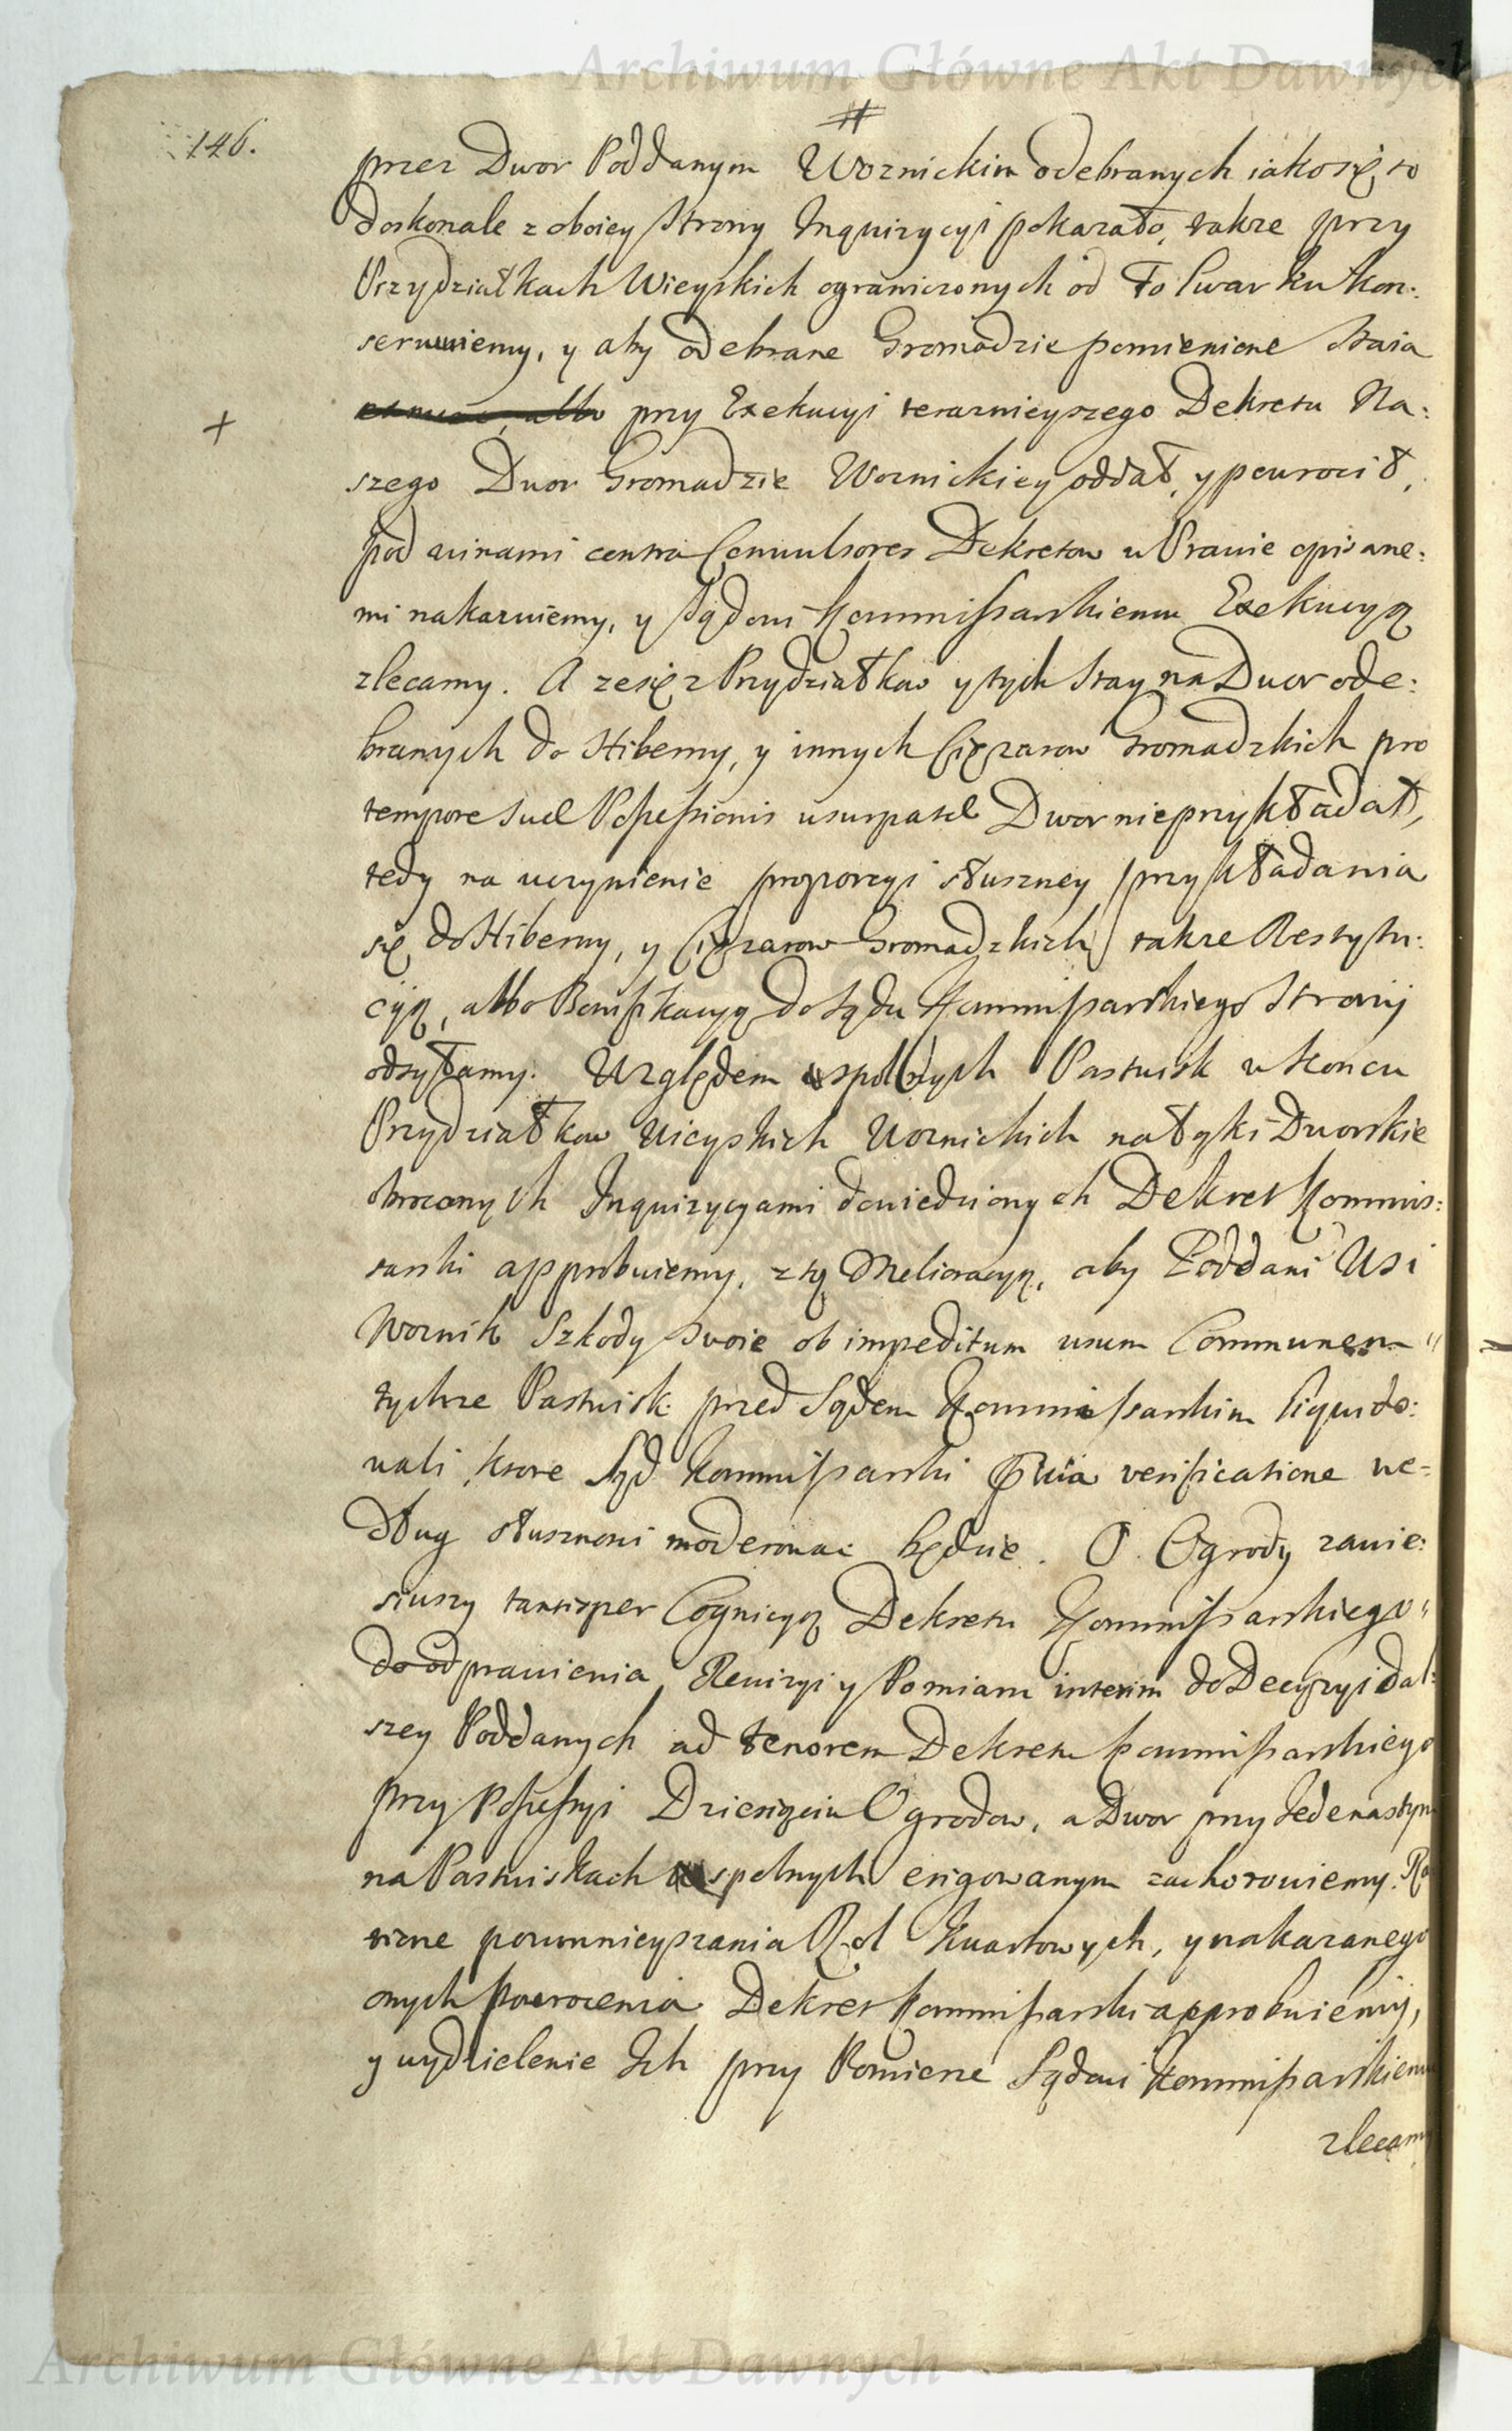 Archiwum Główne Akt Dawnych
#
146.
przez Dwor Poddanym Woznickim odebranych iako się to
doskonale z oboiey strony Inquizycyi pokazało, także przy
Przydziałkach Wieyskich ograniczonych od Folwarku kon:
serwuiemy, y aby odebrane Gromadzie pomienione staia
+ albo przy Exekucyi teraznieyszego Dekretu Na:
szego Dwor Gromadzie Woznickiey oddał, y powrocił,
pod winami contra Convulsores Dekretow w Prawie opisane:
mi nakazuiemy, y Sądowi Kommissarskiemu Exekucyą
zlecamy. A ze się z Przydziałkow y tych stay na Dwor ode:
branych do Hiberny, y innych Cięzarow Gromadzkich pro
tempore suæ Possessionis usurpatæ Dwor nie przykładał,
tedy na uczynienie proporcyi słuszney przykładania
się do Hiberny, y Cięzarow Gromadzkich takze Restytu:
cyą, albo Bonifikacyą do Sądu Kommissarskiego Strony
odsyłamy. Względem wspolnych Pastwisk w koncu
Przydziałkow Wieyskich Woznickich na Łąki Dworskie
obroconych Inquizycyami dowiedzionych Dekret Kommis:
sarski approbuiemy, z tą Melioracyą, aby Poddani Wsi
Woznik Szkody swoie ob impeditum usum Communem "
tychze Pastwisk przed Sądem Kommissarskim liquido:
wali, ktore Sąd Kommissarski prævia verificatione we=
dług słusznosci moderować będzie. O Ogrody zawie:
siwszy tantisper Cognicyą Dekretu Kommissarskiego "
do odprawienia Rewizyi y Pomiaru interim do Decyzyi dal:
szey Poddanych ad tenorem Dekretu Kommissarskiego
przy Possessyi Dziesięciu Ogrodow, a Dwor przy Jedenastym
na Pastwiskach wspolnych erigowanym zachowuiemy.
pounnieyszania Rol Kwartowych, y nakazanego
onych powrocenia Dekret Kommissarski approbuiemy,
y wydzielenie Ich przy Pomierze Sądowi Kommissarskiemu
zlecamy
Archiwum Główne Akt Dawnych